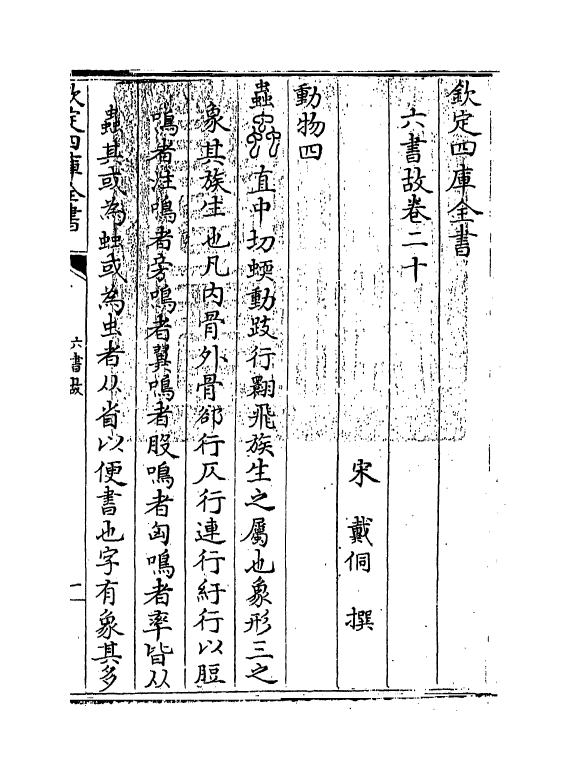 欽定四庫全書
六書故卷二十
宋 戴侗 撰
動物四
蟲直中切蝡動跂行翾飛族生之屬也象形三之
象其族生也凡内骨外骨郤行仄行連行紆行以脰
鳴者注鳴者旁鳴者翼鳴者股鳴者匈鳴者率皆从
蟲其或為䖵或為虫者从省以便書也字有象其多
欽定四庫全書
六書故
一